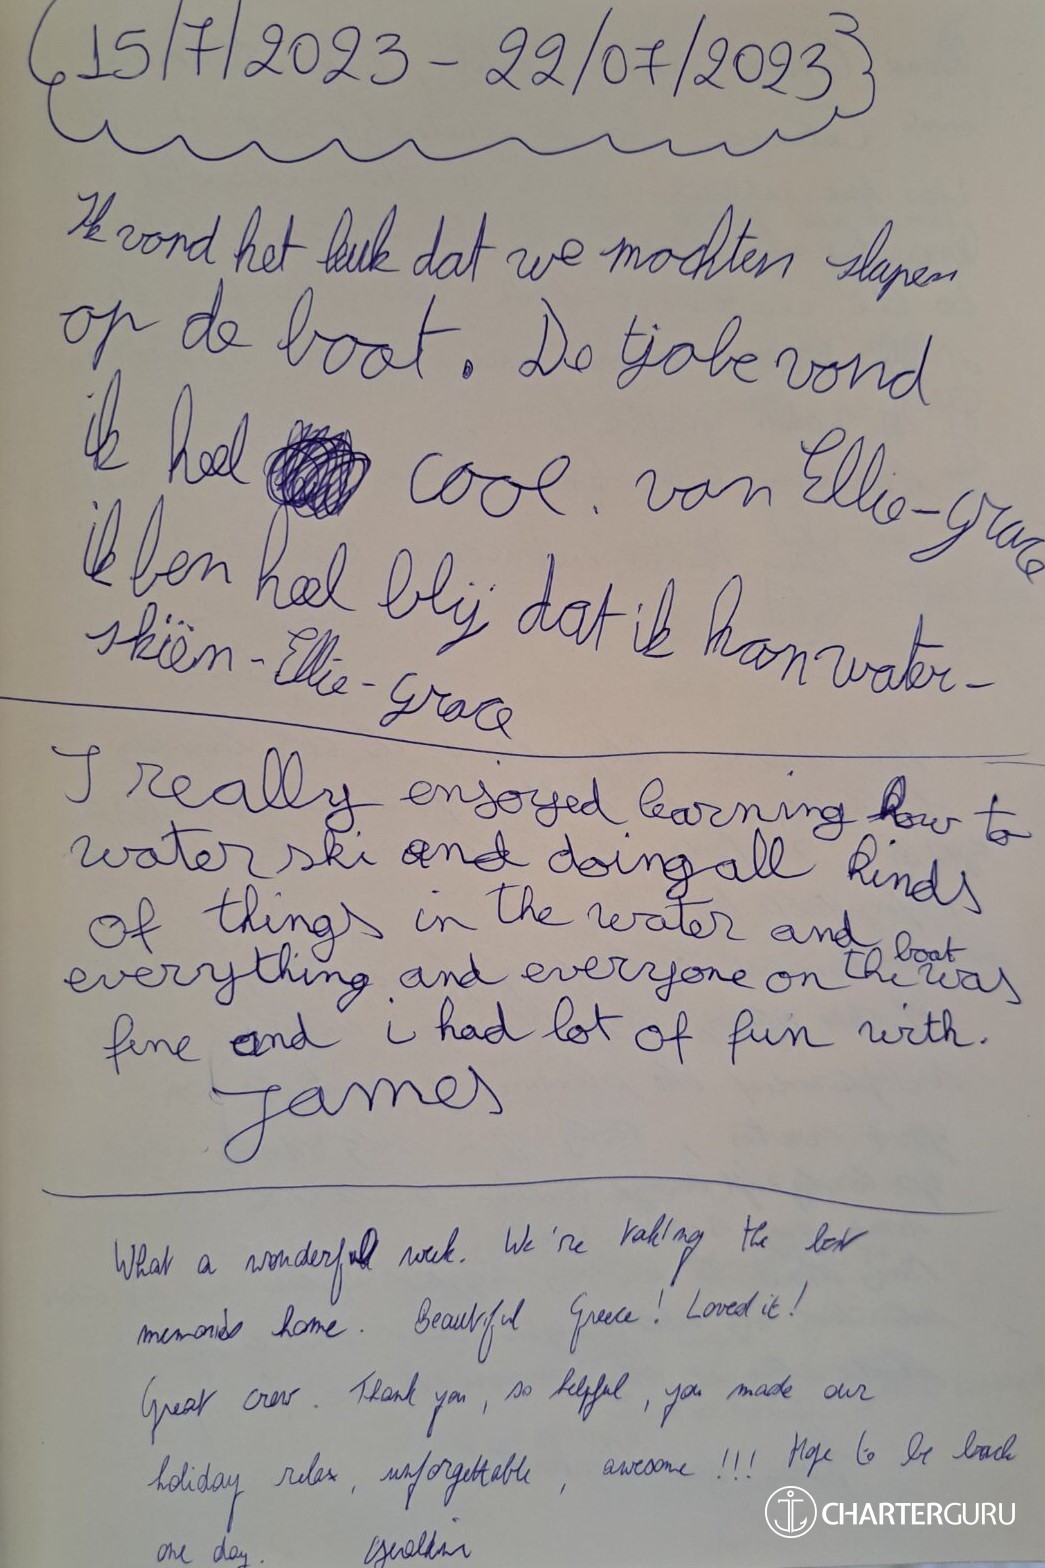 (15/7/2023 - 22/07/2023)
Ik vond het leuk dat we mochten slapen
op de boot. De tjobe vond
ik heel cool. van Ellie-grace
ik ben heel blij dat ik kan water-
skiën - Ellie-grace
I really enjoyed learning how to
water ski and doing all kinds
of things in the water and
everything and everyone on the boat was
fine and i had lot of fun with.
James
What a wonderful week. We're taking the best
memories home. Beautiful Greece! Loved it!
Great crew. Thank you, so helpful, you made our
holiday relax, unforgettable, awesome!!! Hope to be back
one day.
CHARTERGURU